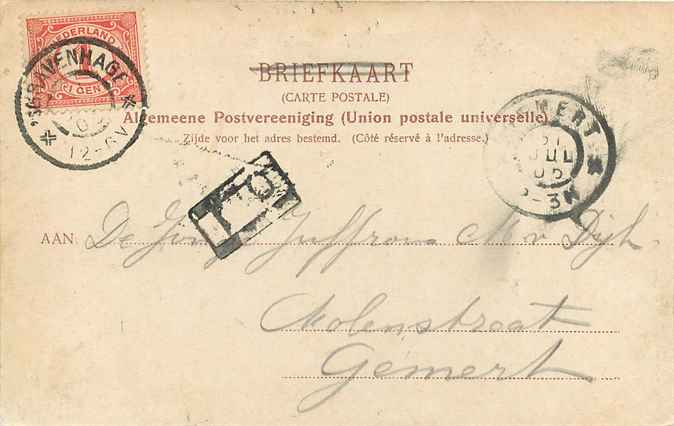 NEDERLAND
1 CENT
'SGRAVENHAGE
12-6V
BRIEFKAART
(CARTE POSTALE)
Algemeene Postvereeniging (Union postale universelle)
Zijde voor het adres bestemd. (Côté réservé à l'adresse.)
GEMERT
JUL
-3N
AAN: De Jonge Juffrouw M v Dijk.
Molenstraat
Gemert